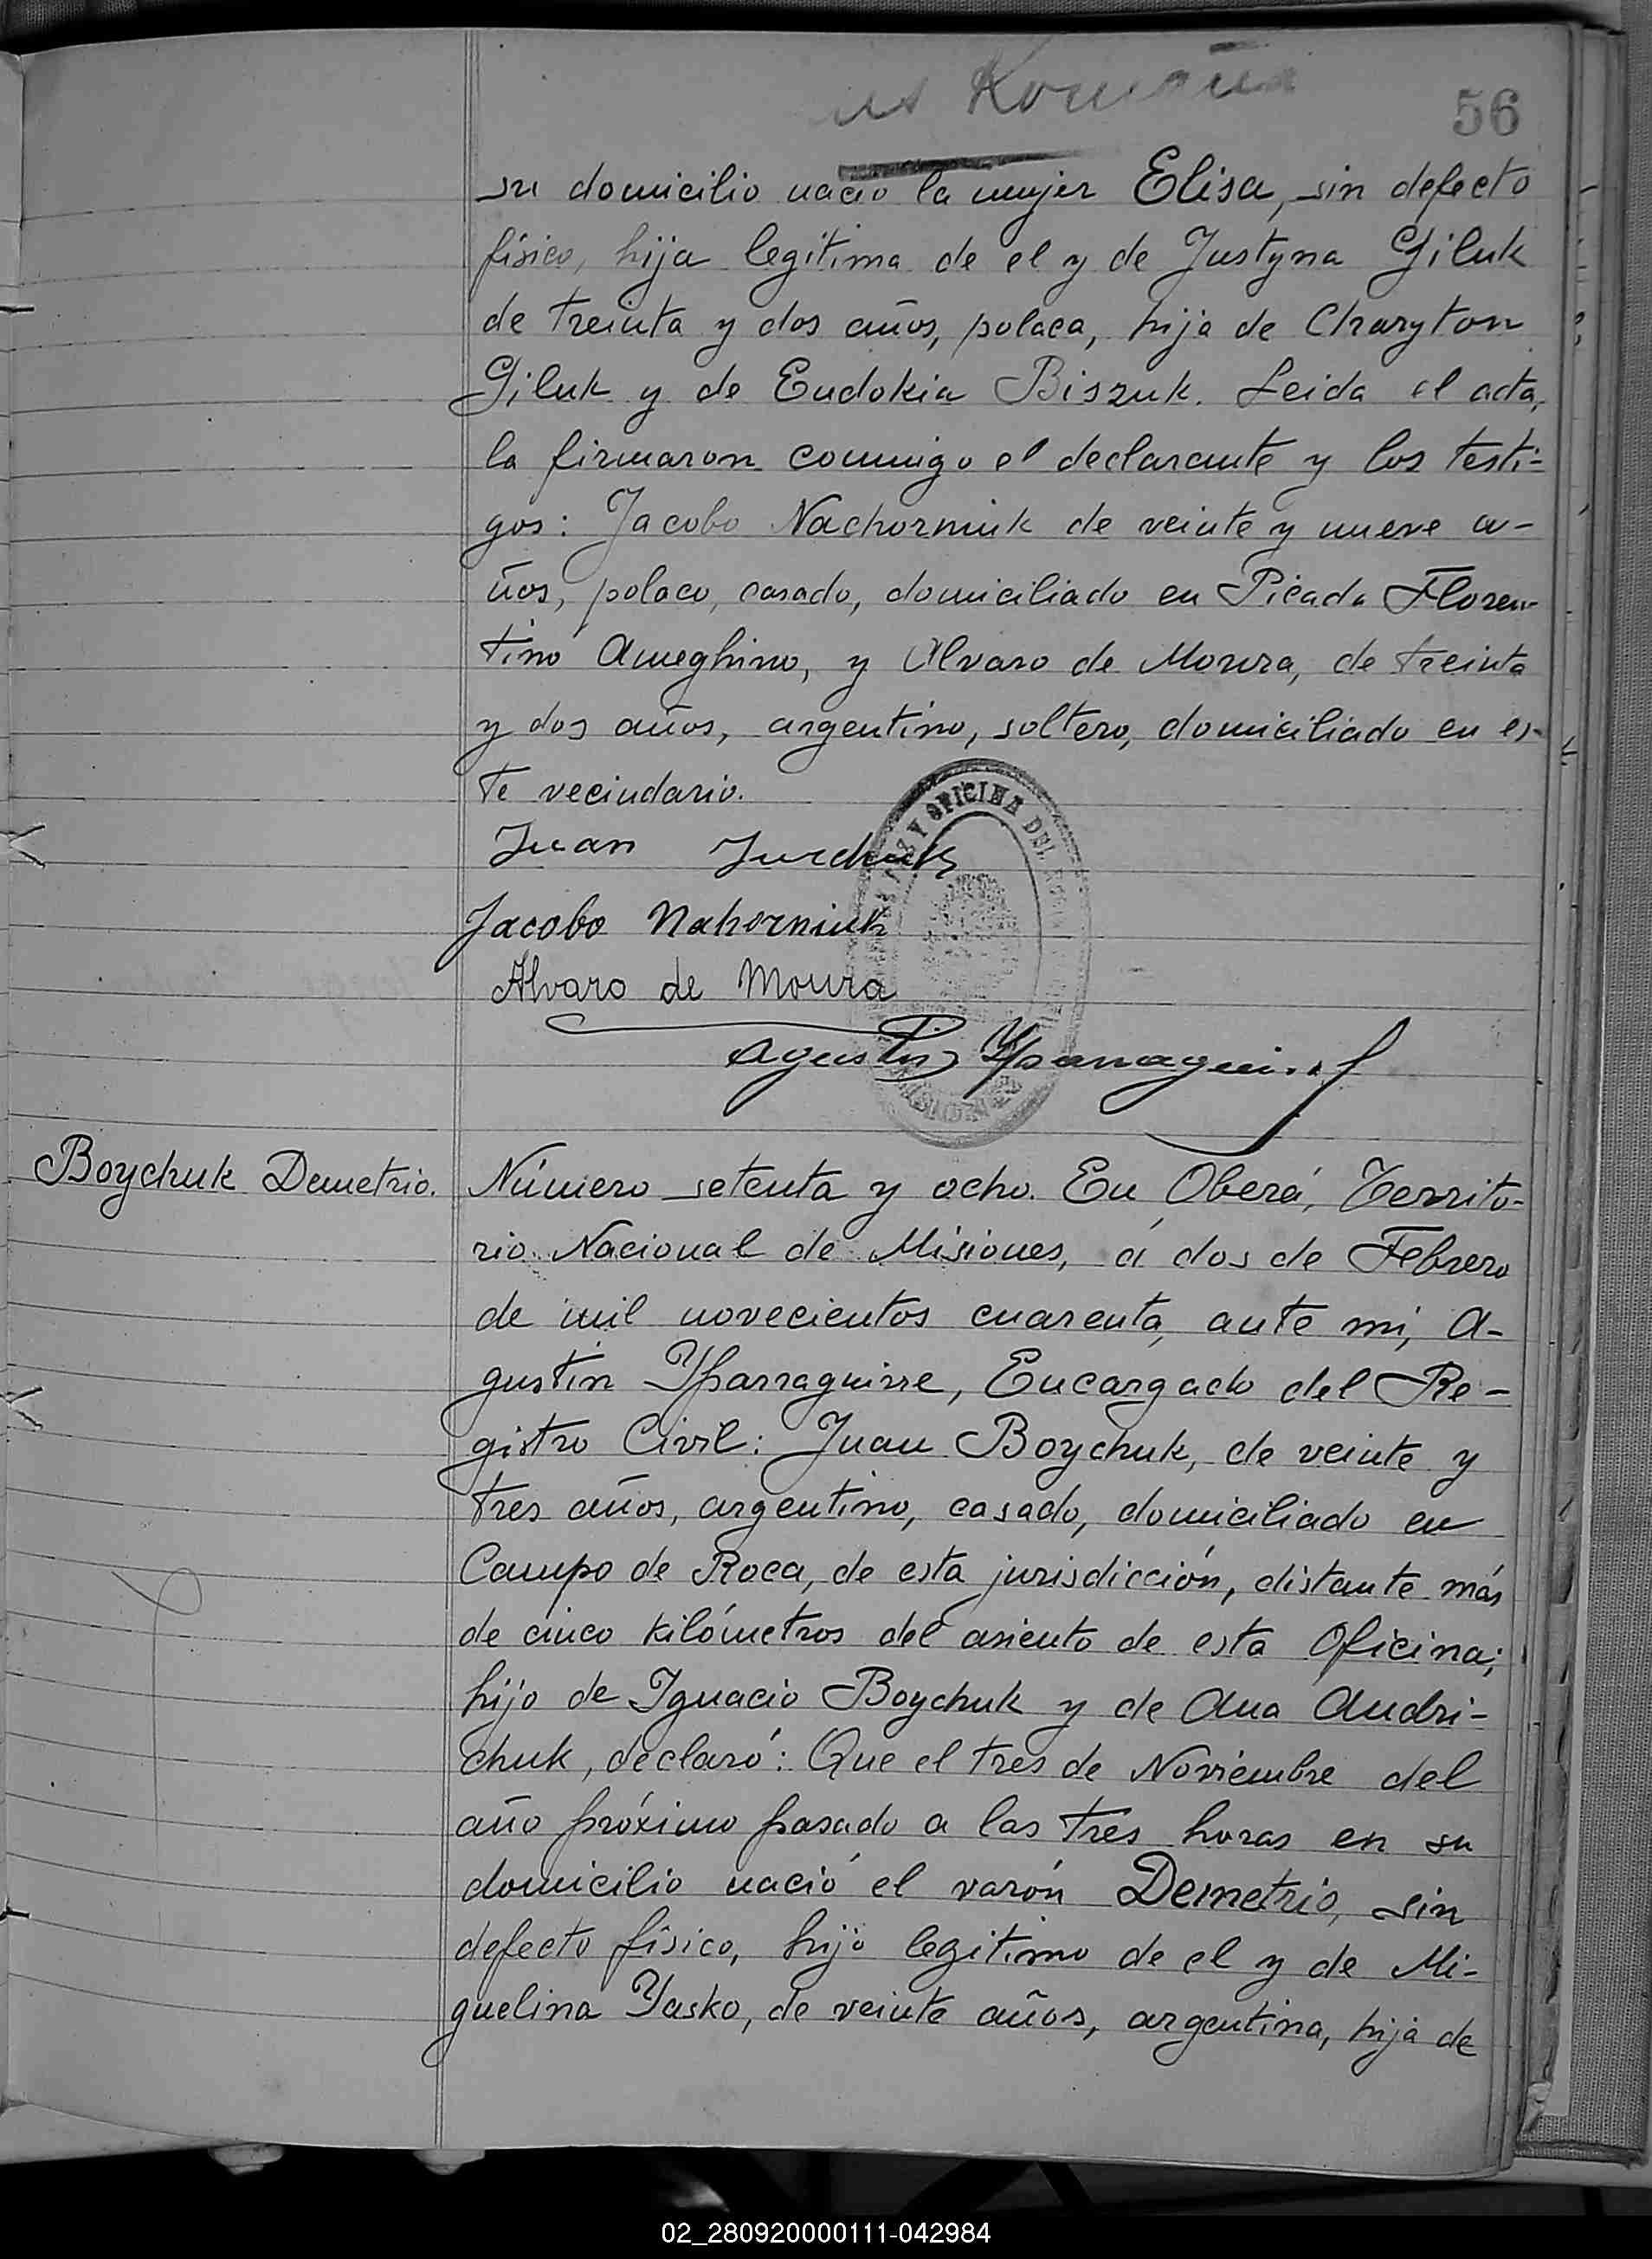 56
su domicilio nacio la mujer Elisa, sin defecto
físico, hija legítima de el y de Justyna Giluk
de treinta y dos años, polaca, hija de Charyton
Giluk y de Eudokia Biszuk. Leida el acta,
la firmaron conmigo el declarante y los testi-
gos: Jacobo Nachorniuk de veinte y nueve a-
ños, polaco, casado, domiciliado en Picada Floren-
tino Ameghino, y Alvaro de Moura, de treinta
y dos años, argentino, soltero, domiciliado en es-
te vecindario.
Juan Jurchuk
Jacobo Nahorniuk
Alvaro de Moura
Agustin Yparraguirre
Y OFICINA DEL
Boychuk Demetrio.
Número setenta y ocho. En Oberá, Territo-
rio Nacional de Misiones, á dos de Febrero
de mil novecientos cuarenta, ante mi, A-
gustin Yparraguirre, Encargado del Re-
gistro Civil: Juan Boychuk, de veinte y
tres años, argentino, casado, domiciliado en
Campo de Roca, de esta jurisdicción, distante más
de cinco kilómetros del asiento de esta Oficina;
hijo de Ignacio Boychuk y de Ana Andri-
chuk, declaró: Que el tres de Noviembre del
año próximo pasado a las tres horas en su
domicilio nació el varón Demetrio, sin
defecto físico, hijo legitimo de el y de Mi-
guelina Yasko, de veinte años, argentina, hija de
02_280920000111-042984